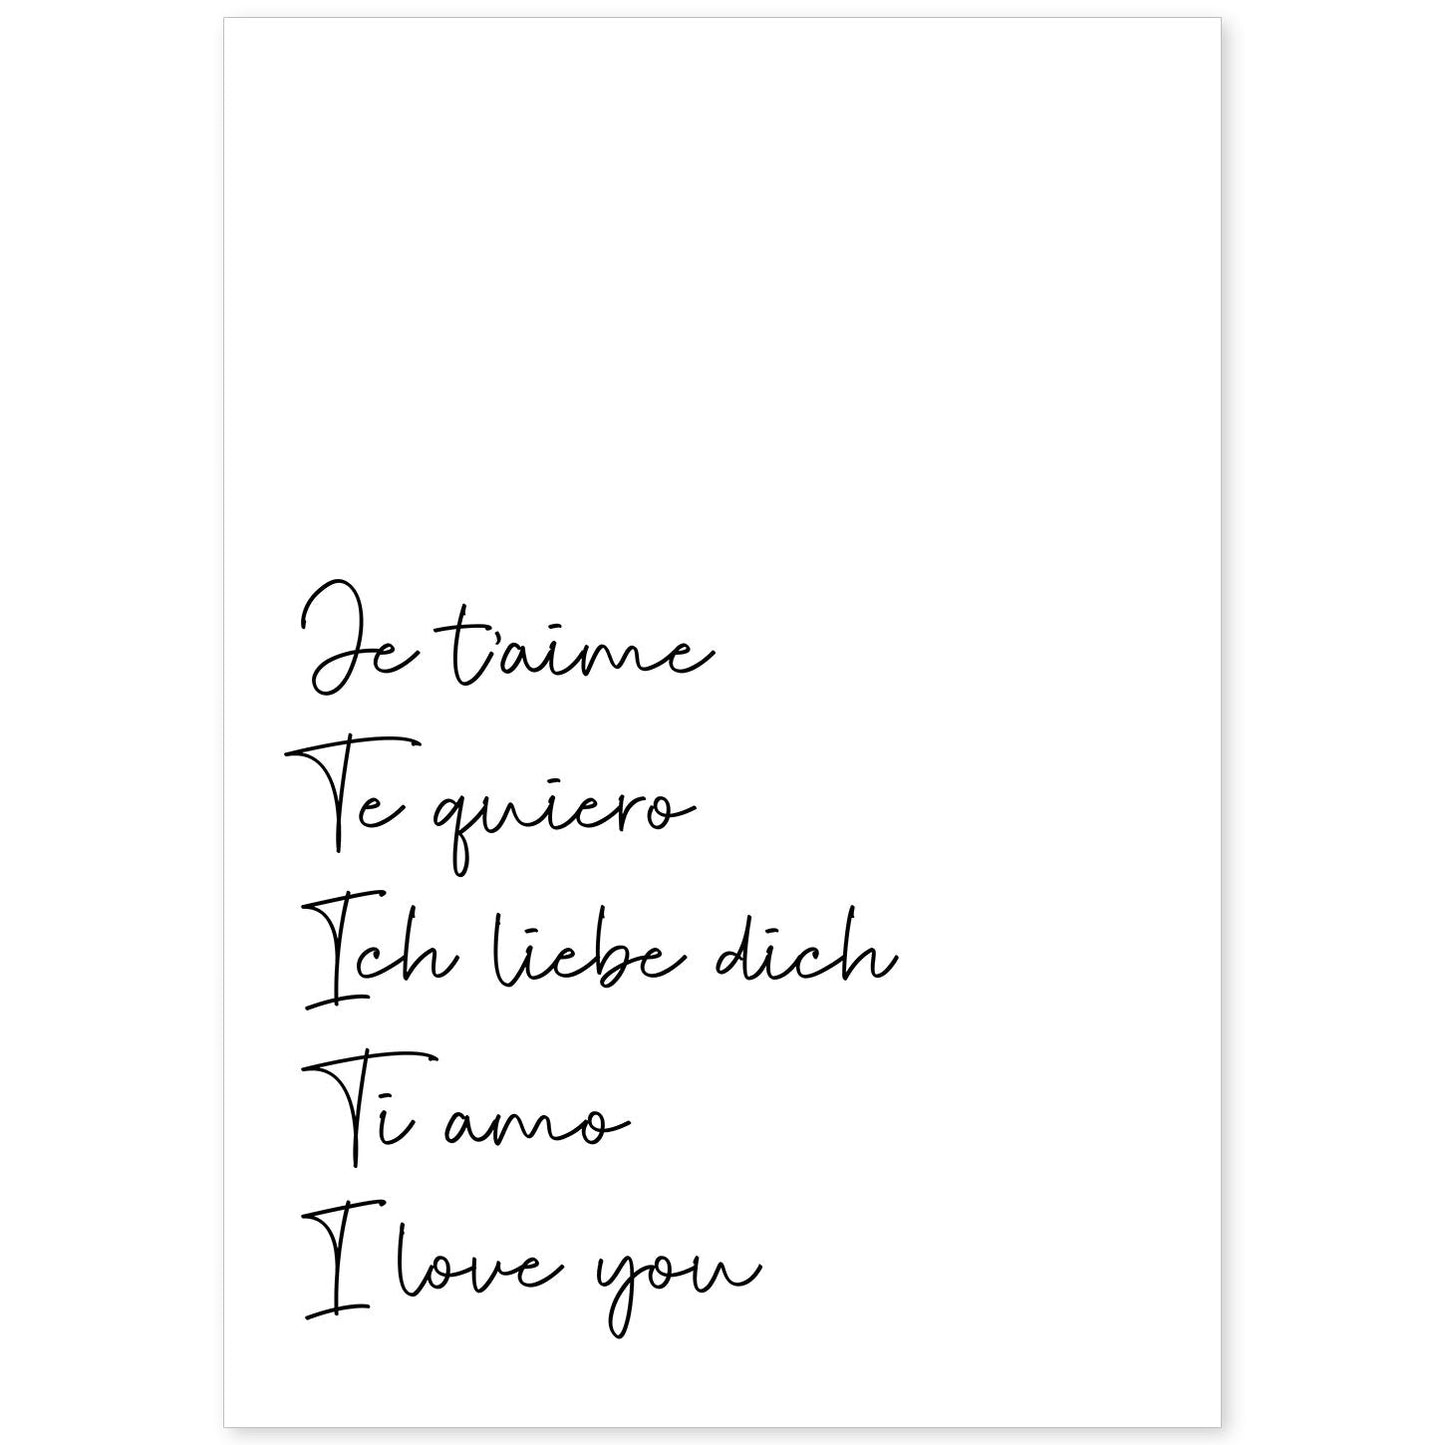 Je t'aime
Te quiero
Ich liebe dich
Ti amo
I love you